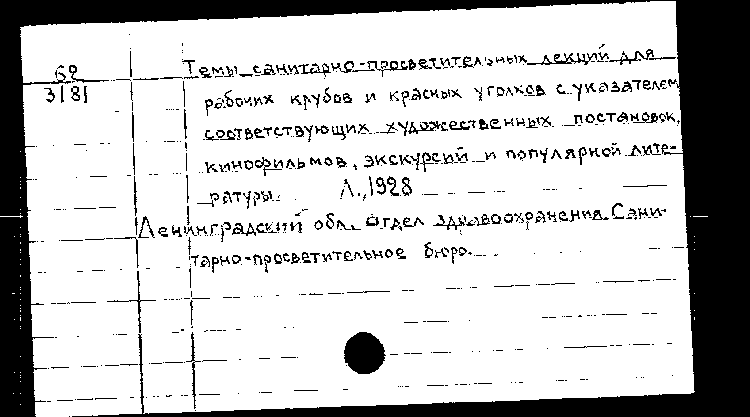 62
3181
Темы санитарно-просветительных лекций для
рабочих крубов и красных уголков с указателем
соответствующих художественных постановок,
кинофильмов, экскурсий и популярной лите-
ратуры. Л., 1928
Ленинградский обл. отдел здравоохранения. Сани-
тарно-просветительное бюро.